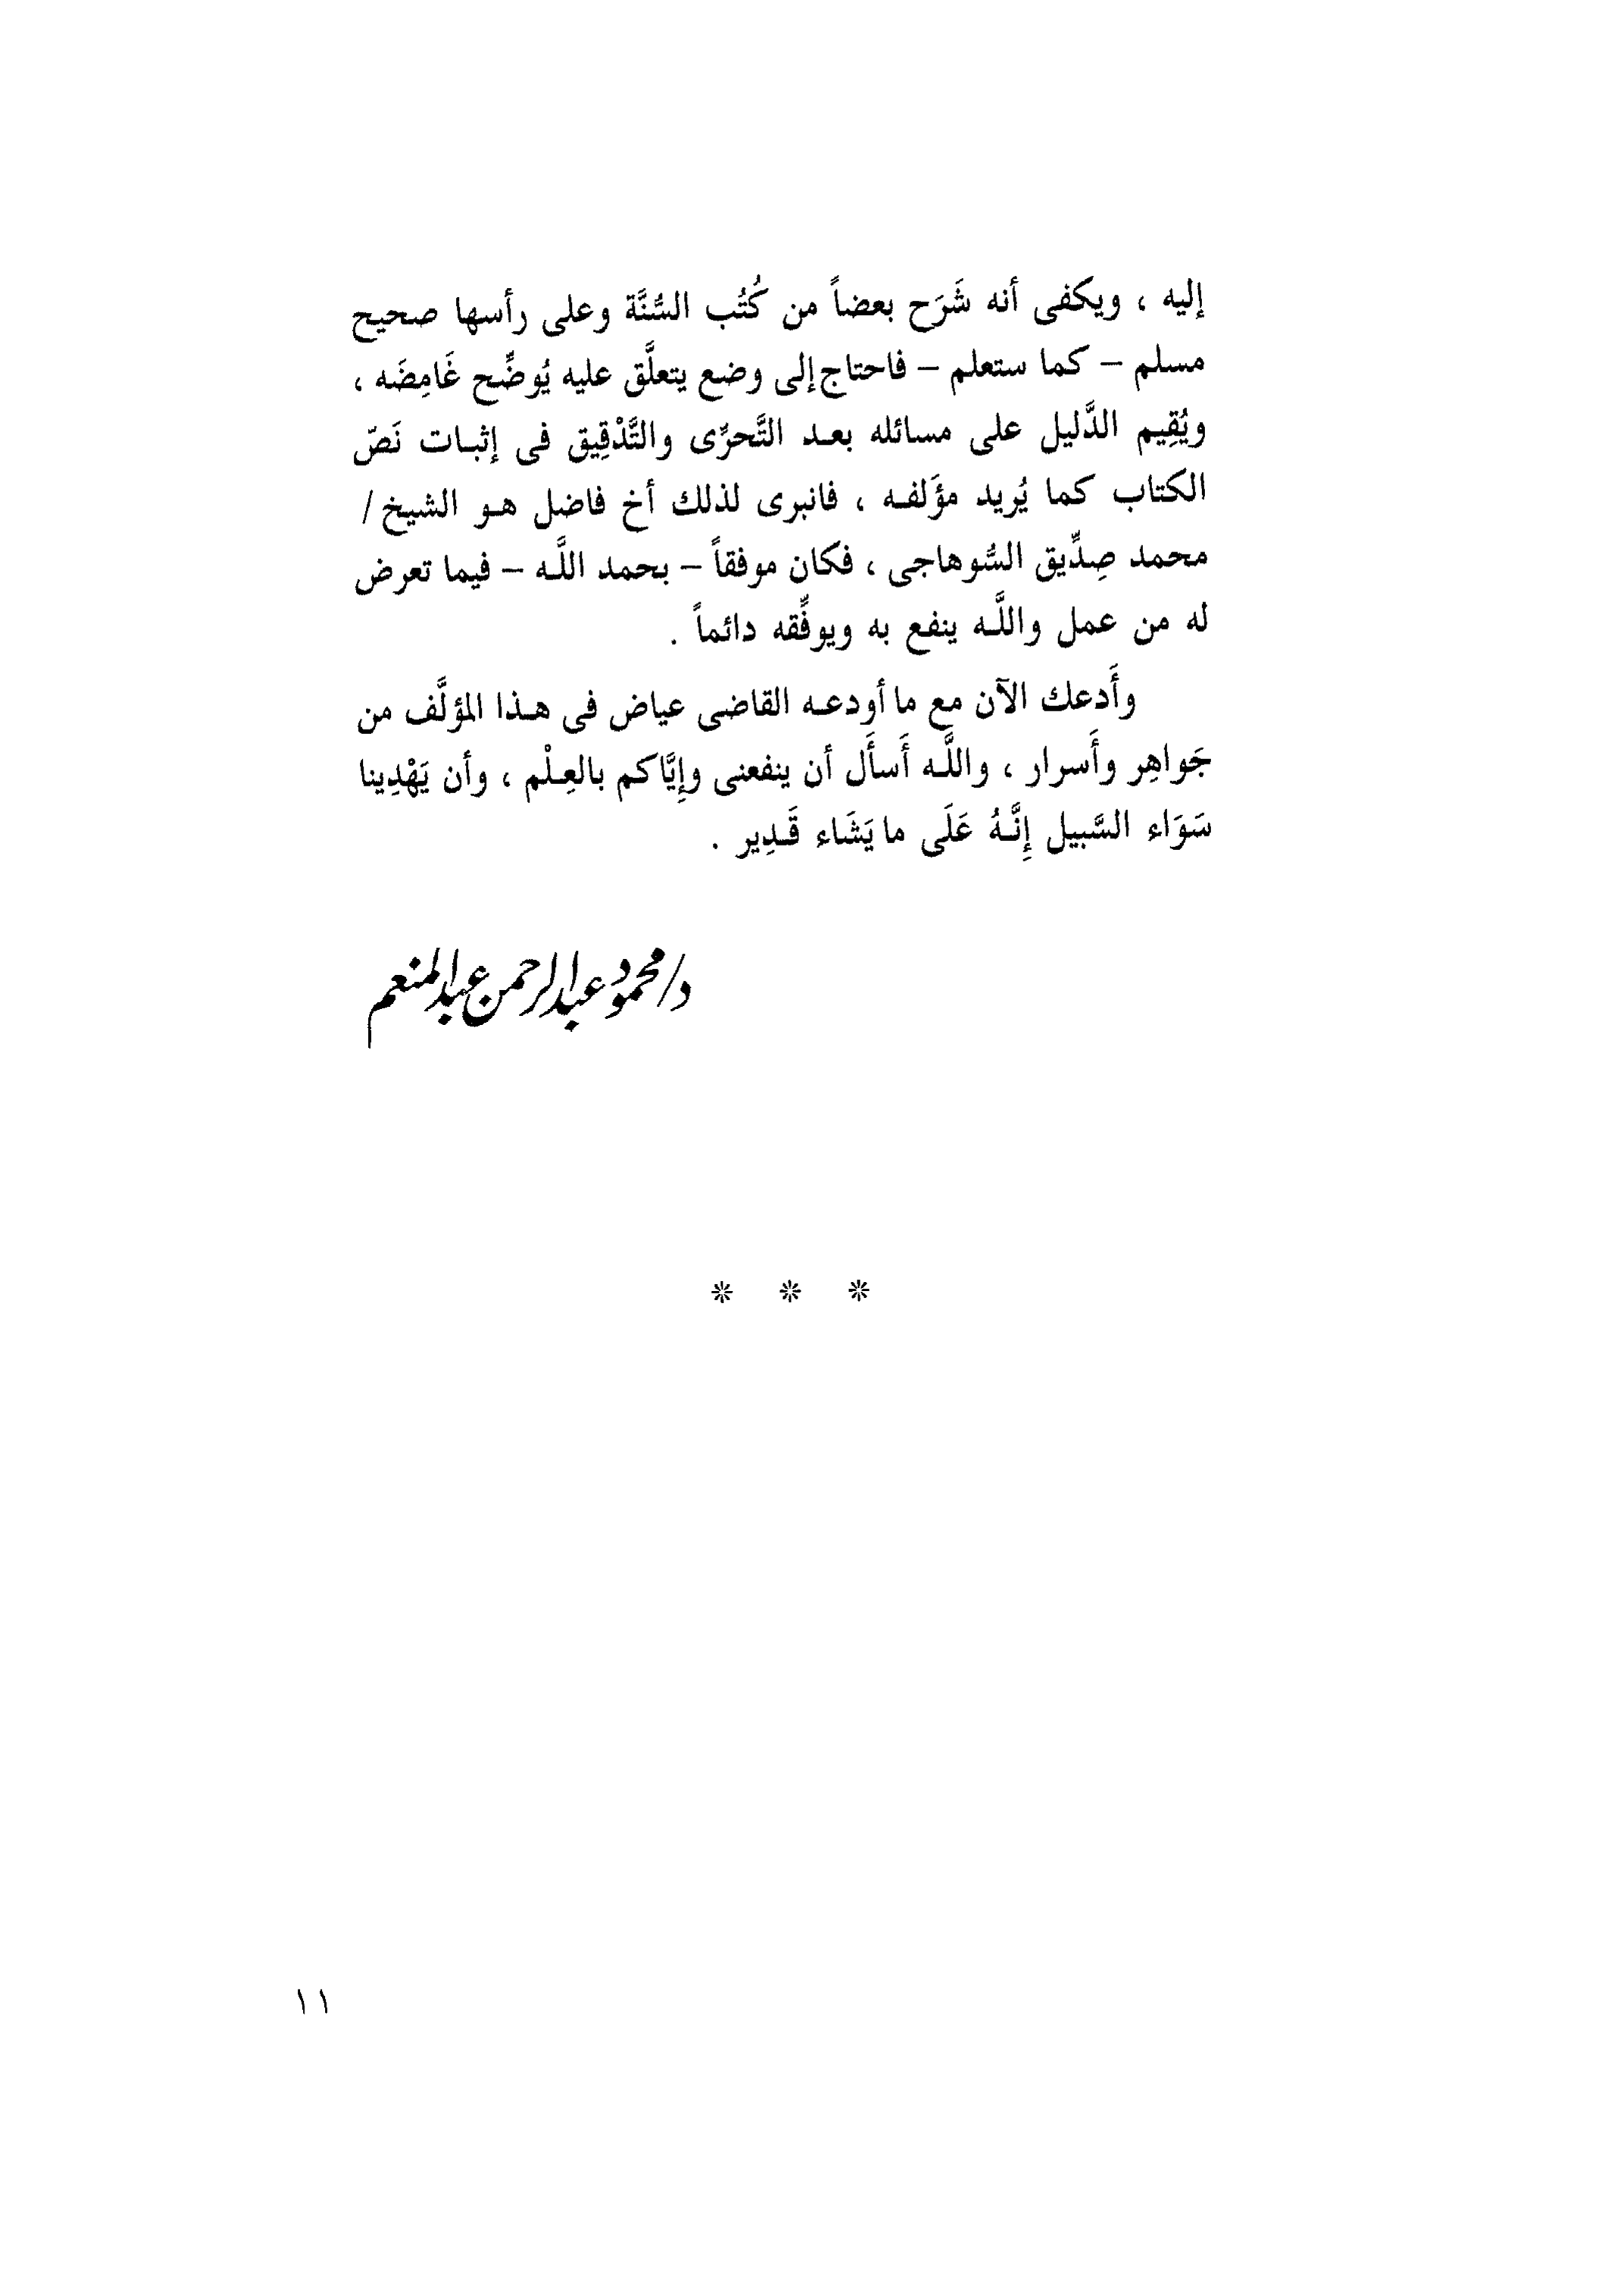 إليه ، ويكفى أنه شَرَح بعضاً من كُتُب السُّنَّة وعلى رأسها صحيح
مسلم – كما ستعلم – فاحتاج إلى وضع يتعلَّق عليه يُوضِّح غَامِضَه ،
ويُقِيم الدَّليل على مسائله بعـد التَّحرِّى والتَّدْقِيق فى إثبـات نَصّ
الكتاب كما يُريد مؤَلفـه ، فانبرى لذلك أخ فاضل هـو الشيخ /
محمد صِدِّيق السُّوهاجى ، فكان موفقاً – بحمد اللَّـه – فيما تعرض
له من عمل واللَّـه ينفع به ويوفِّقه دائماً .
وأَدعك الآن مع ما أودعـه القاضى عياض فى هـذا المؤلَّف من
جَواهِر وأَسرار ، واللَّـه أَسأَل أن ينفعنى وإِيَّاكم بالعِـلْم ، وأن يَهْدِينا
سَوَاء السَّبيل إِنَّـهُ عَلَى ما يَشَاء قَـدِير .
د/محمود عبدالرحمن عبدالمنعم
* * *
١١